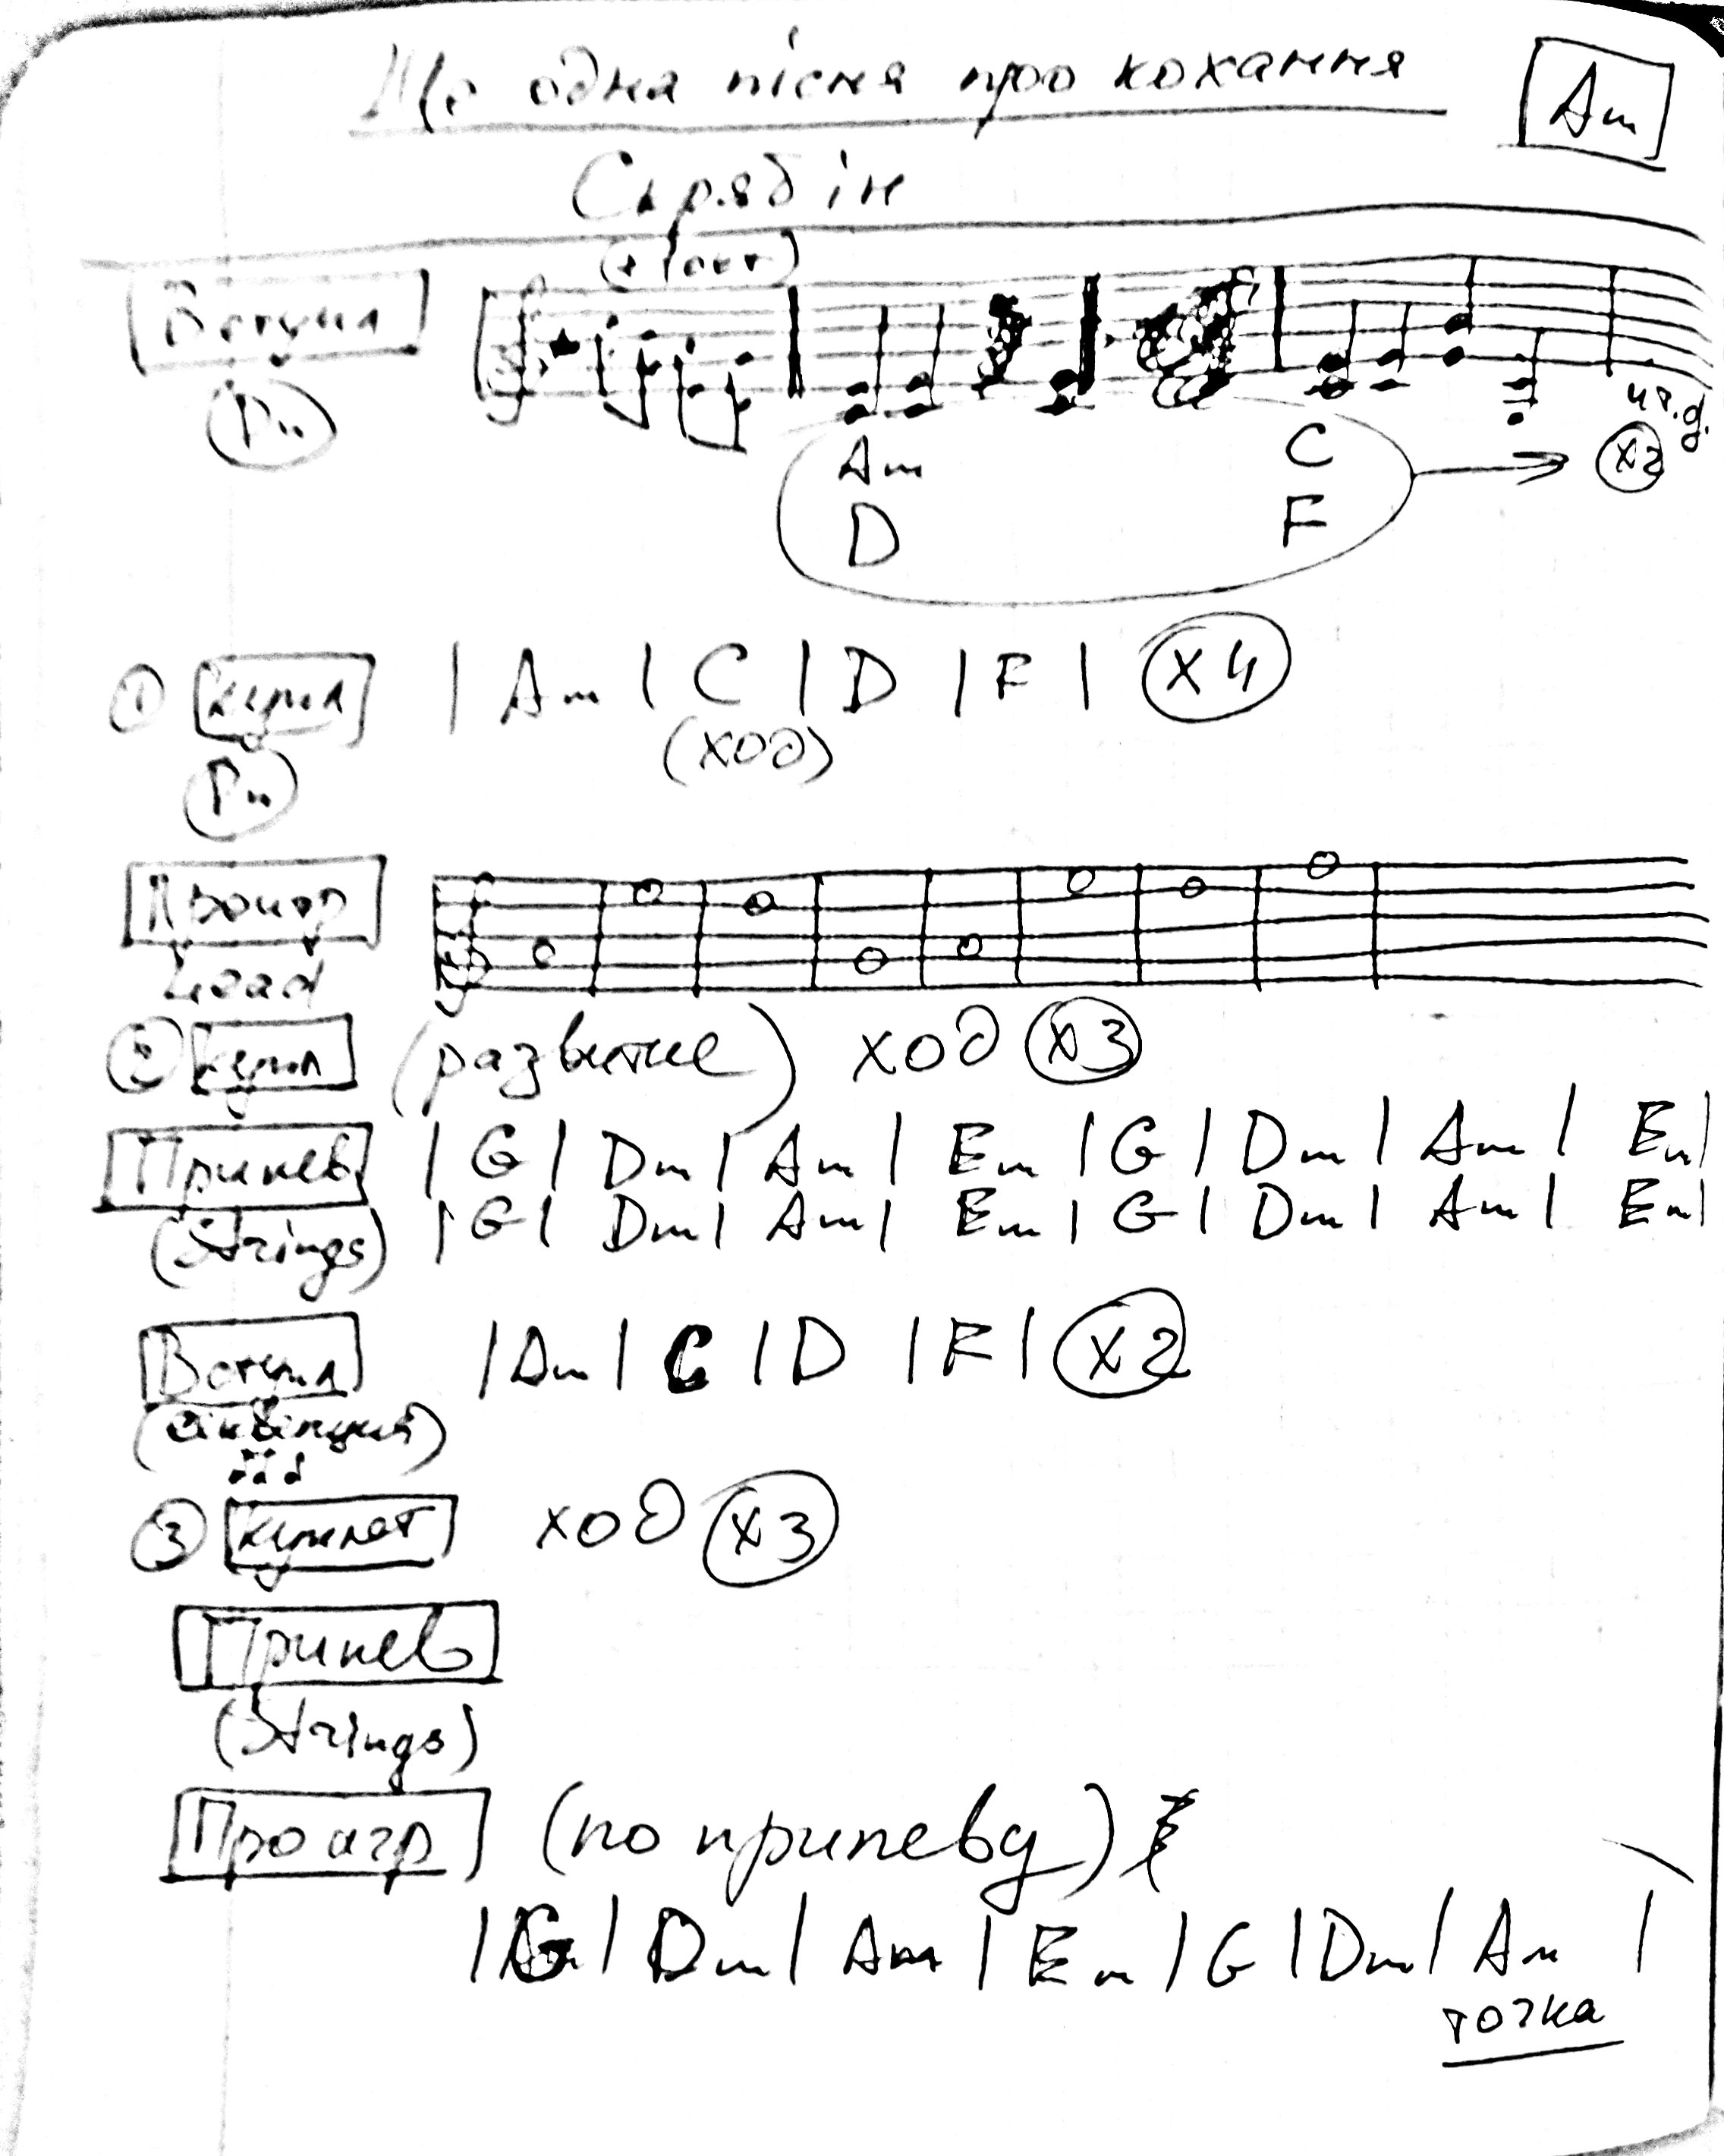 Ще одна пісня про кохання Am
Скрябін
(+1 окт)
Вступл
Pn
Am C
D F
и т.д.
x2
① Купл | Am | C | D | F | x4
(ход)
Pn
Проигр
Lead
② Купл (развитие) ход x3
Припев | G | Dm | Am | Em | G | Dm | Am | Em |
(Strings) | G | Dm | Am | Em | G | Dm | Am | Em |
Вступл | Am | C | D | F | x2
③ Куплет ход x3
Припев
(Strings)
Проигр (по припеву)
| G | Dm | Am | Em | G | Dm | Am |
точка